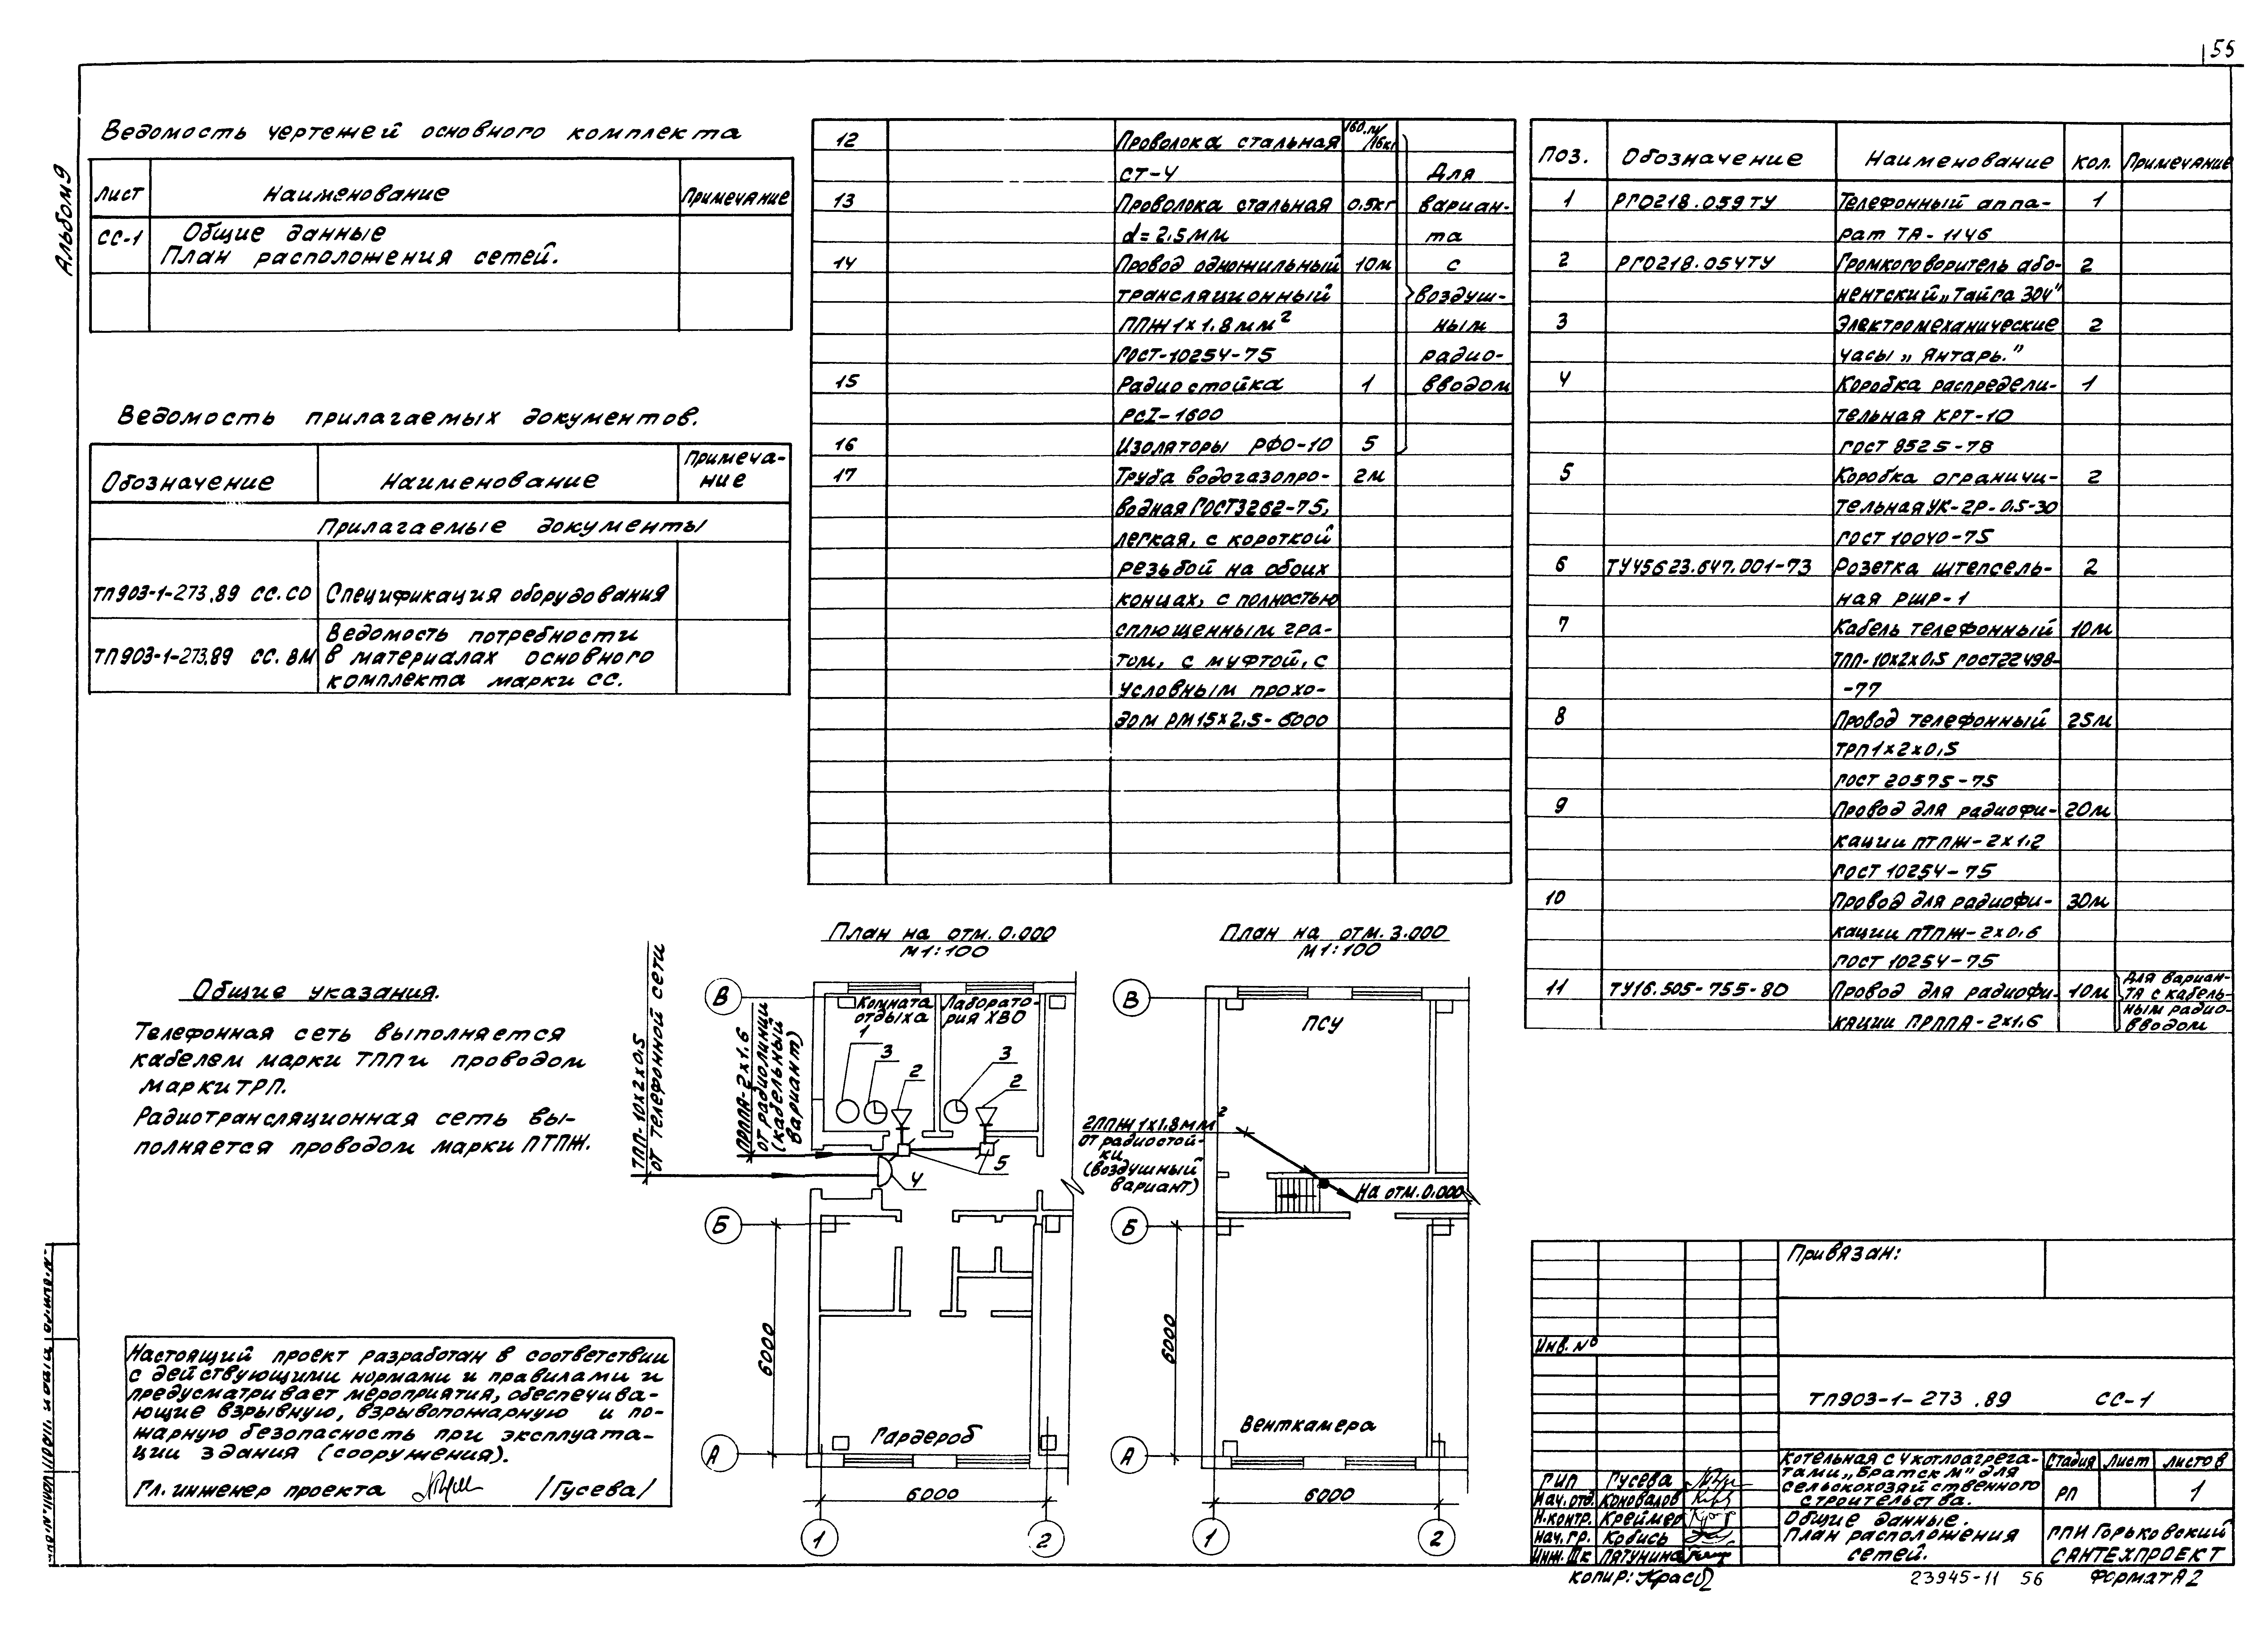 55
Альбом 9
Ведомость чертежей основного комплекта
Лист Наименование Примечание
СС-1 Общие данные
План расположения сетей.
Ведомость прилагаемых документов.
Обозначение Наименование Примеча-
ние
Прилагаемые документы
ТП903-1-273.89 СС.СО Спецификация оборудования
Ведомость потребности
ТП903-1-273.89 СС.ВМ в материалах основного
комплекта марки СС.
Общие указания.
Телефонная сеть выполняется
кабелем марки ТПП и проводом
марки ТРП.
Радиотрансляционная сеть вы-
полняется проводом марки ПТПЖ.
Настоящий проект разработан в соответствии
с действующими нормами и правилами и
предусматривает мероприятия, обеспечива-
ющие взрывную, взрывопожарную и по-
жарную безопасность при эксплуата-
ции здания (сооружения).
Гл. инженер проекта /Гусева/
12 Проволока стальная 160.м/16кг
СТ-4 Для
13 Проволока стальная 0.5кг вариан-
d=2.5мм та
14 Провод одножильный 10м с
трансляционный воздуш-
ППЖ 1х1.8мм² ным
ГОСТ-10254-75 радио-
15 Радиостойка 1 вводом
РСI-1600
16 Изоляторы РФО-10 5
17 Труба водогазопро- 2м
водная ГОСТ3262-75,
легкая, с короткой
резьбой на обоих
концах, с полностью
сплющенным гра-
том, с муфтой, с
условным прохо-
дом РМ15х2.5-6000
Поз. Обозначение Наименование Кол. Примечание
1 РГ0218.059ТУ Телефонный аппа- 1
рат ТА-1146
2 РГ0218.054ТУ Громкоговоритель або- 2
нентский „Тайга 304"
3 Электромеханические 2
часы „Янтарь."
4 Коробка распредели- 1
тельная КРТ-10
ГОСТ 8525-78
5 Коробка ограничи- 2
тельная УК-2Р-0.5-30
ГОСТ 10040-75
6 ТУ45623.647.001-73 Розетка штепсель- 2
ная РШР-1
7 Кабель телефонный 10м
ТПП-10х2х0.5 ГОСТ22498-
-77
8 Провод телефонный 25м
ТРП1х2х0.5
ГОСТ 20575-75
9 Провод для радиофи- 20м
кации ПТПЖ-2х1.2
ГОСТ 10254-75
10 Провод для радиофи- 30м
кации ПТПЖ-2х0.6
ГОСТ 10254-75
11 ТУ16.505-755-80 Провод для радиофи- 10м Для вариан-
та с кабель-
кации ПРППА-2х1.6 ным радио-
вводом
План на отм. 0.000
М1:100
ТПП-10х2х0.5
от телефонной сети
ПРППА-2х1.6
от радиолинии
(кабельный
вариант)
В
Комната
отдыха
Лаборато-
рия ХВО
1
3
2
3
2
5
4
Б
6000
Гардероб
А
6000
1
2
План на отм. 3.000
М1:100
В
ПСУ
2ППЖ 1х1.8мм²
от радиостой-
ки
(воздушный
вариант)
На отм. 0.000
Б
6000
Венткамера
А
6000
1
2
Привязан:
Инв. №
ТП903-1-273.89 СС-1
Котельная с 4 котлоагрега-
тами „Братск М" для
сельскохозяйственного
строительства.
Стадия Лист Листов
РП 1
Общие данные.
План расположения
сетей.
ГПИ Горьковский
САНТЕХПРОЕКТ
ГИП Гусева
Нач. отд. Коновалов
Н.контр. Креймер
Нач. гр. Кобись
Инж. IIк Пятунина
Копир:
23945-11 56
Формат А2